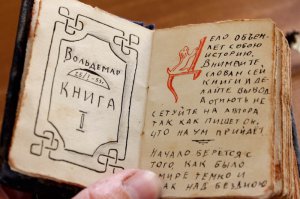 Вольдемар
КНИГА
I
ЕЛО ОБЪЕМ-
ЛЕТ СОБОЮ
ИСТОРИЮ.
ВНИМАЙТЕ
СЛОВАМ СЕЙ
КНИГИ И ДЕ-
ЛАЙТЕ ВЫВОД
А ОТНЮТЬ НЕ
СЕТУЙТЕ НА АВТОРА
ТАК КАК ПИШЕТ ОН,
ЧТО НА УМ ПРИЙДЕТ
НАЧАЛО БЕРЕТСЯ С
ТОГО, КАК БЫЛО
МИРЕ ТЕМНО И
АК НАД БЕЗДНОЮ